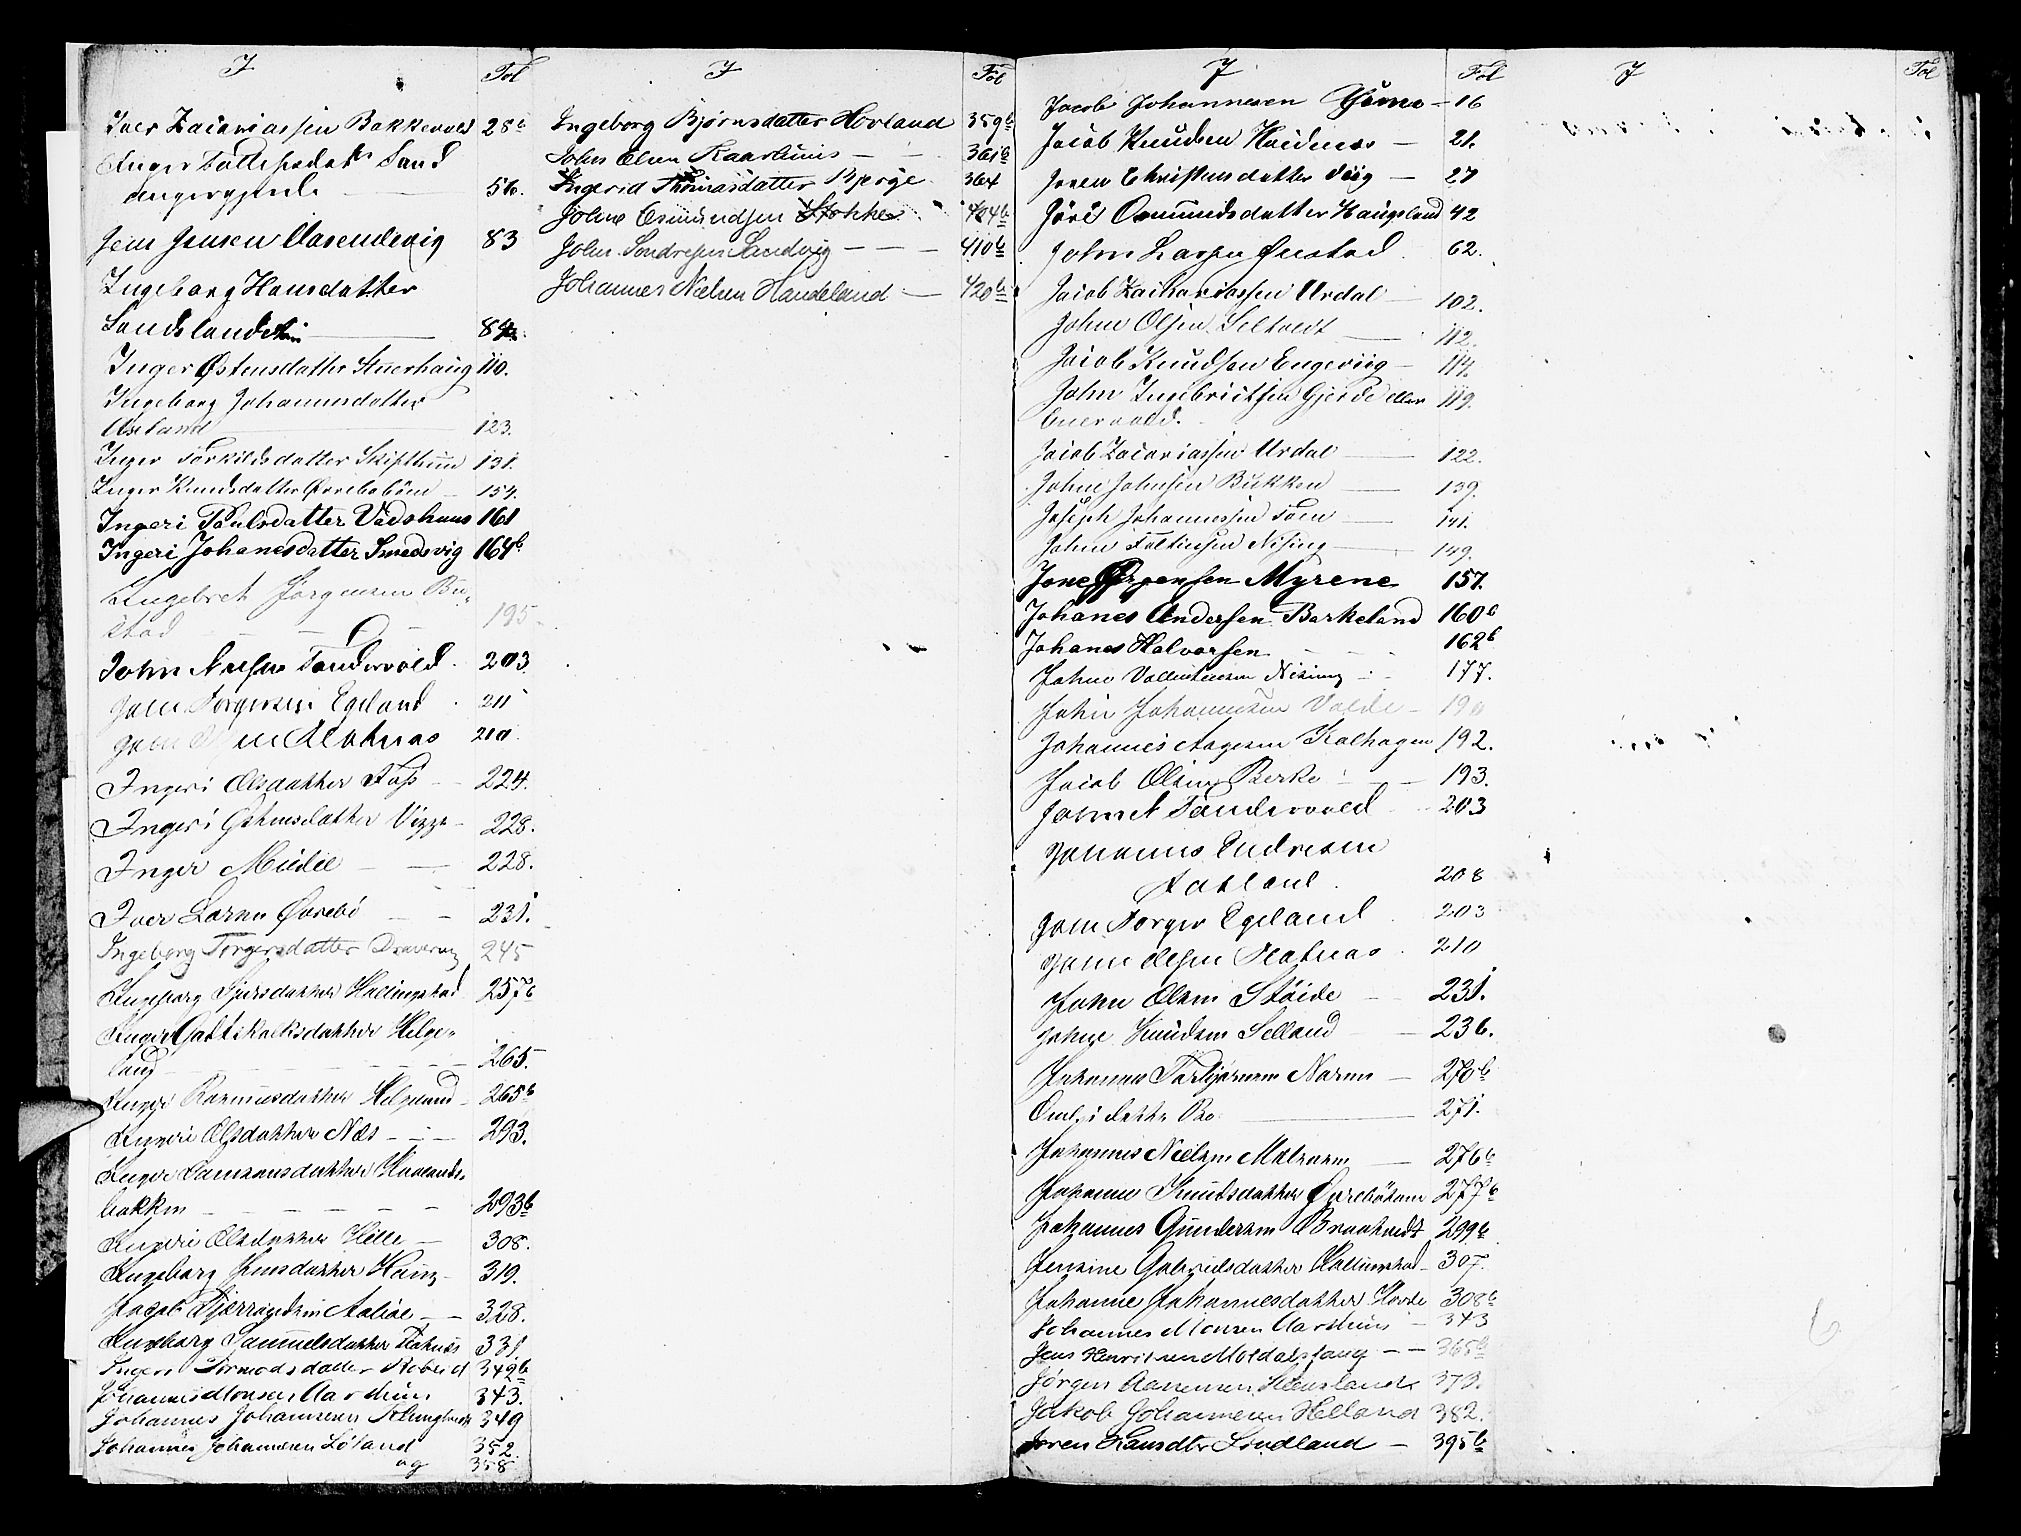 I Fol
Iver Zacariassen Bakkevold 28b
Inger Tollefsdatr Sand
angergjerde 56.
Jens Jensen Aasendevig 83
Ingeborg Hansdatter
Sandsland 84.
Inger Østensdatter Stuerhaug 110.
Ingeborg Johannesdatter
123.
Inger Torkildsdatter Skifthun 131.
Inger Knudsdatter Øvrebøbøen 154.
Ingeri Poulsdatter Vadshuus 161
Ingeri Johanesdatter Smedsvig 164b
Ingebret Jørgensen Bu-
stad 195.
John Tandervold 203.
Torgersen Egeland 211
Hatnæs 210.
Ingeri Olsdatter Foss 224.
Ingeri Vigge 228.
Inger 228.
Iver Larsen Øvrebø 231.
Ingeborg Torgersdatter Draveng 245
Ingeborg Sjursdatter Hallingstad 257b
Inger Gottskalksdatter Helge-
land 265.
Inger Rasmusdatter Helgeland 265b
Ingeri Olsdatter Næs 293.
Inger Samsonsdatter Haalands-
bakken 293b
Ingeri Olsdatter Hille 308.
Ingeborg Jensdatter Haug 319.
Jacob 328.
Ingeborg Samuelsdatter Hatnæs 331
Ingeri Tormodsdatter 342b
Johannes Monsen Aarthun 343.
Johannes Johannesen Klungtvedt 349
Johannes Johannesen Løland 352.
og 358
I Fol
Ingeborg Bjørnsdatter Hovland 359b
John Olsen Kaarhuus 361b
Ingerid Thomasdatter Bjerge 364
Johne Osmundsen Stokke 404b
John Sondresen Sandvig 410b
Johannes Nielsen Handeland 420b
J Fol
Jacob Johannesen 16
Jacob Knudsen 21.
Joren Christensdatter Siig 27
Jøri Osmundsdatter Haugeland 42
John Larsen Ønstad 62.
Jacob Zachariassen Urdal 102.
John Olsen Seltvedt 112.
Jacob Knudsen Engeviig 114.
John Ingebrictsen Gjerde eller 119.
Jacob Zacariassen Urdal 122.
John Johnsen Bukken 139.
Joseph Johannessen Toen 141.
John Folkensen Nising 149.
Jone Jørgensen Myrene 157.
Johanes Andersen Barkeland 160b
Johanes Halvorsen 162b
John Vallentinsen Nising 177.
John Johannesen Valde 190
Johannes Aagesen Kalhagen 192.
Jacob Olsen Berke 193.
John N Tandervold 203
Johannes Endresen
208
John Torger Egeland 203
John Olsen Hatnæs 210
John Olsen Støide 231.
Johne Knudsen Selland 236.
Johannes Torbjørnsen 270b
271.
Johannes Nielsen 276b
Johanne Knudsdatter Øvrebøtøen 277b
Johannes Gundersen Braatvedt 299b
Jensine Gabrielsdatter Hallingstad 307.
Johanne Johannesdatter Hovde 308b
Johannes Monsen Aarthun 343
Jens Henriksen Moldalsfang 365b
Jørgen Aanensen 373.
Jakob Johannesen Helland 382.
Joren Hansdtr Sindland 395b
J Fol
6